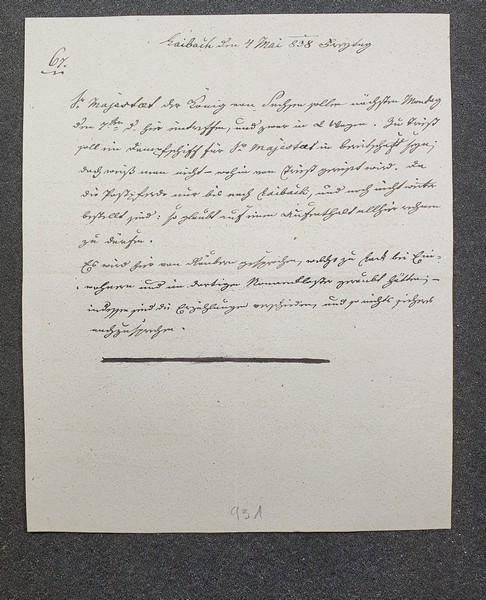 Laibach den 4 Mai 838 Freytag
67.
Sr Majestaet der König von Sachsen sollen nächsten Montag
den 7ten d. hier eintreffen, und zwar in 2 Wagen. Zu Triest
soll ein Dampfschiff für Sr Majestaet in bereitschaft seyn;
doch weiß man nicht – wohin von Triest gereist wird. Da
die Postpferde nur bis nach Laibach, und noch nicht weiter
bestellt sind: so glaubt auf einen Aufenthalt allhier rechnen
zu dürfen.
Es wird hier von Räubern gesprochen, welche zu Lack bei Ein-
wohnern und im dortigen Nonnenkloster geraubt hätten; –
indessen sind die Erzählungen verschieden, und so nichts sicheres
nachzusprechen.
931